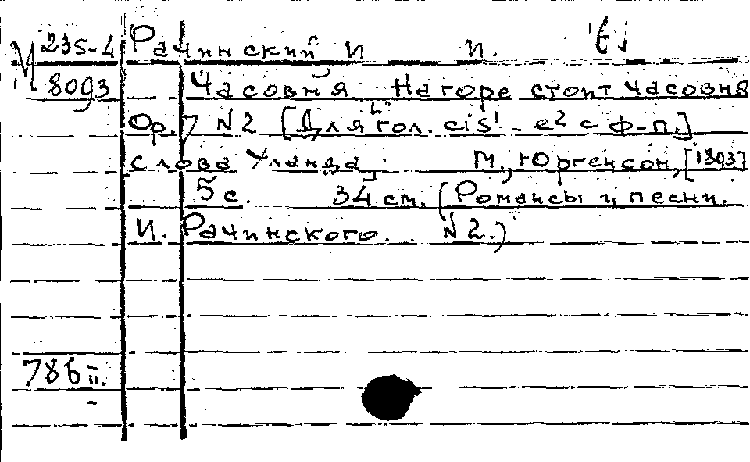 М 235-4 Рачинский И. И.
8093 Часовня На горе стоит часовня
Op. 7 №2 [Для гол. cis¹ - e² с ф-п.]
слова Уланда. М., Юргенсон, [1903]
5 с. 34 см. (Романсы и песни.
И. Рачинского. №2.)
786 II.